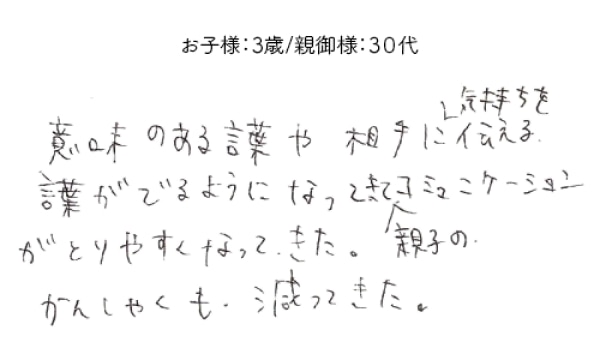 お子様：3歳/親御様：30代
気持ちを
意味のある言葉や 相手に伝える
言葉がでるようになってきてコミュニケーション
がとりやすくなってきた。親子の
かんしゃくも 減ってきた。